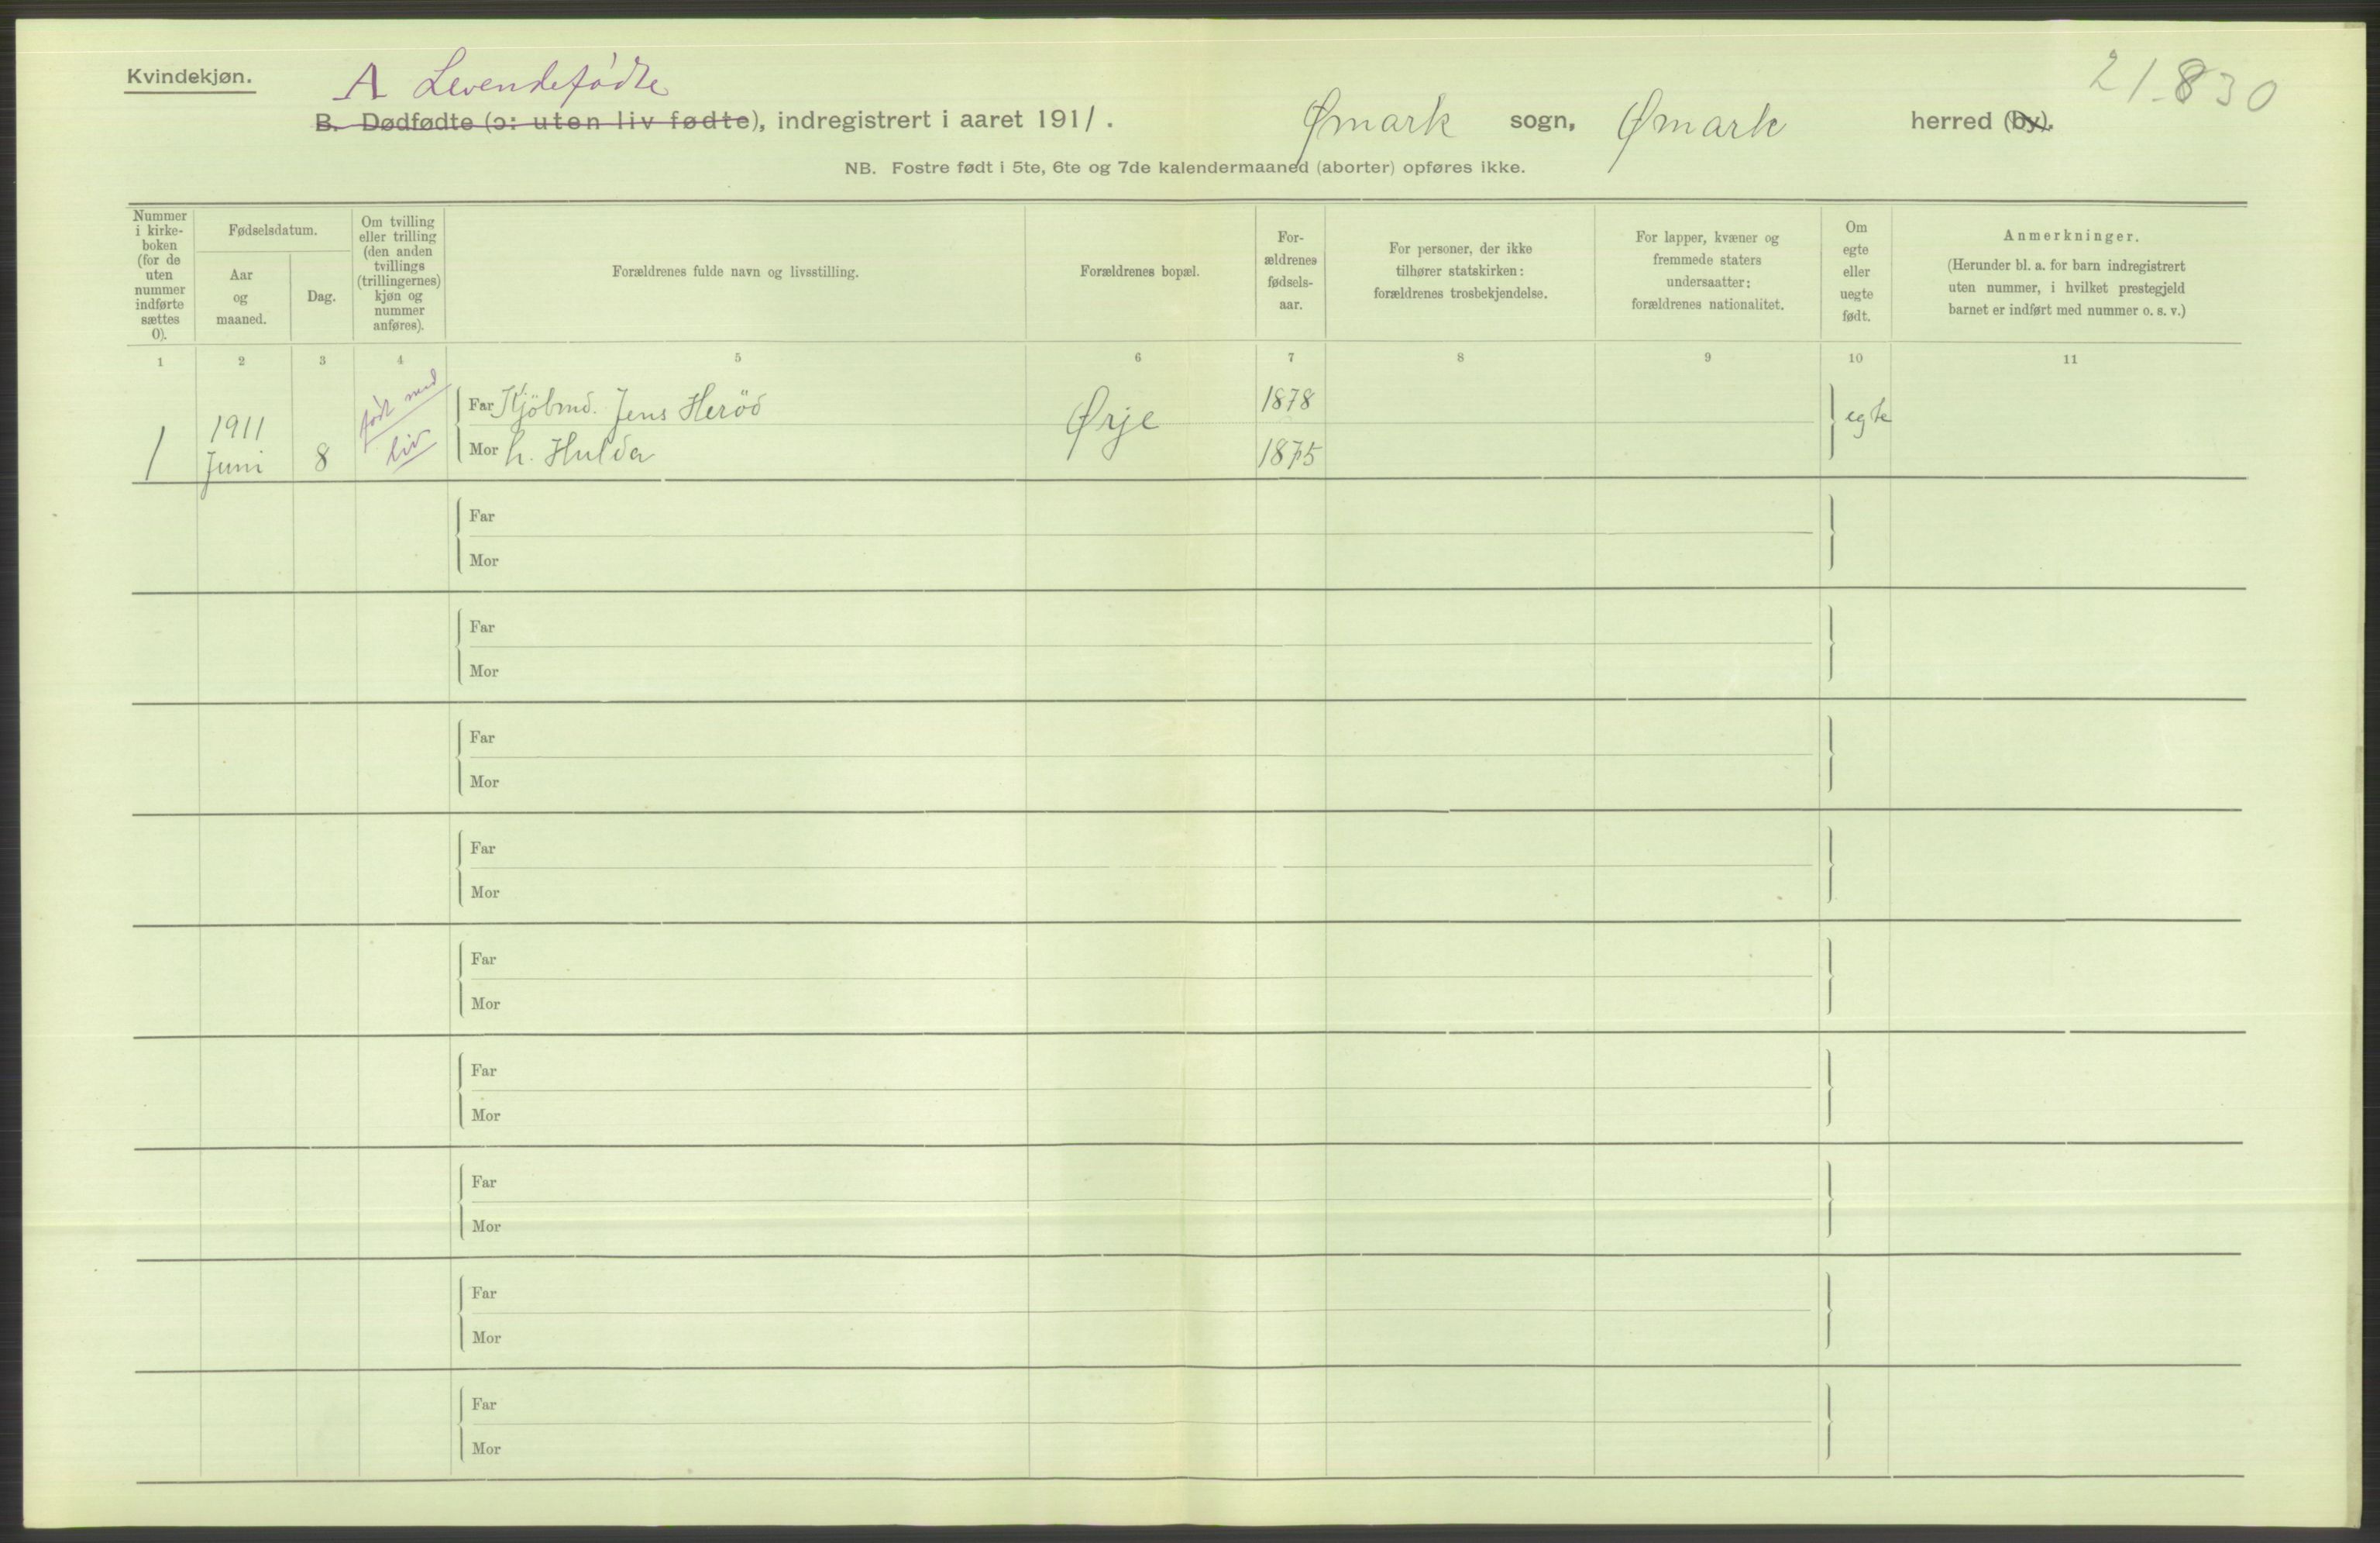 Kvindekjøn.
A Levendefødte
21-830
B. Dødfødte (ɔ: uten liv fødte), indregistrert i aaret 1911. Ømark sogn, Ømark herred (by).
NB. Fostre født i 5te, 6te og 7de kalendermaaned (aborter) opføres ikke.
Nummer
i kirke-
boken
(for de
uten
nummer
indførte
sættes
0).
Fødselsdatum.
Aar
og
maaned.
Dag.
Om tvilling
eller trilling
(den anden
tvillings
(trillingernes)
kjøn og
nummer
anføres).
Forældrenes fulde navn og livsstilling.
Forældrenes bopæl.
For-
ældrenes
fødsels-
aar.
For personer, der ikke
tilhører statskirken:
forældrenes trosbekjendelse.
For lapper, kvæner og
fremmede staters
undersaatter:
forældrenes nationalitet.
Om
egte
eller
uegte
født.
Anmerkninger.
(Herunder bl. a. for barn indregistrert
uten nummer, i hvilket prestegjeld
barnet er indført med nummer o. s. v.)
1 2 3 4 5 6 7 8 9 10 11
1
1911
Juni
8
født med
liv
Far Kjøbmd. Jens Heröd
Mor h. Hulda
Ørje
1878
1875
egte
Far
Mor
Far
Mor
Far
Mor
Far
Mor
Far
Mor
Far
Mor
Far
Mor
Far
Mor
Far
Mor